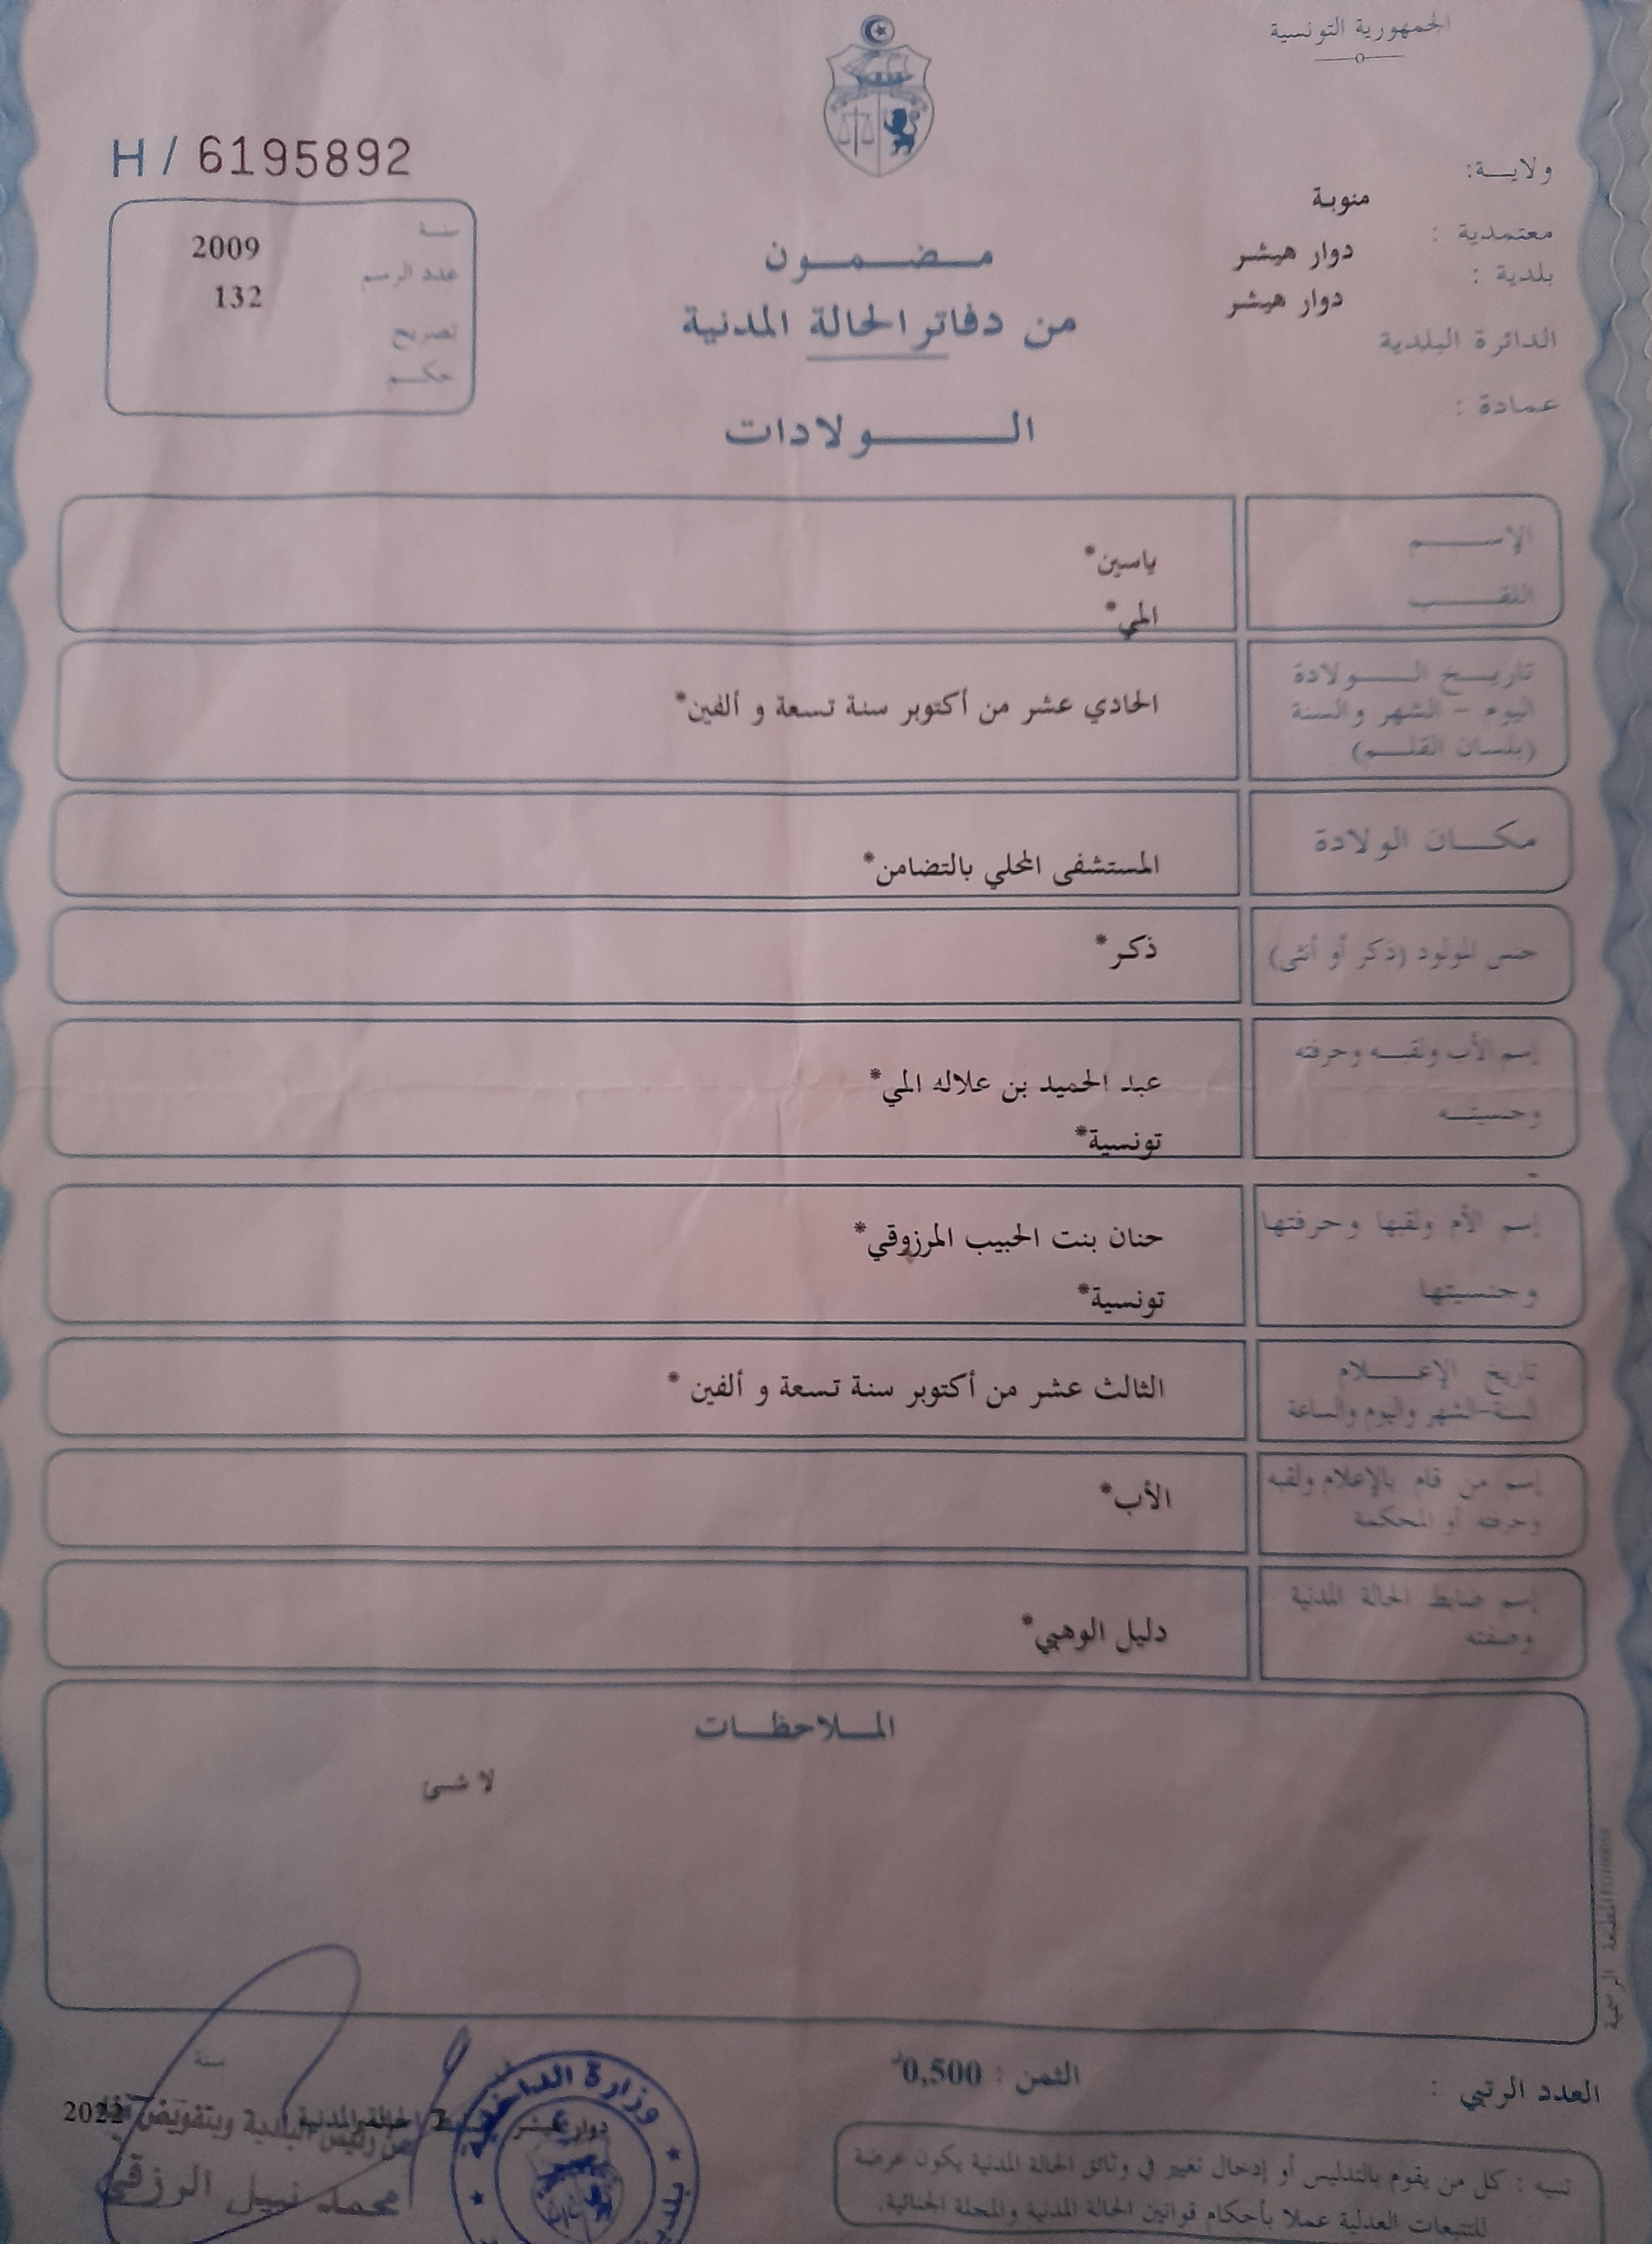 الجمهورية التونسية
H / 6195892
ولاية:
منوبة
معتمدية :
دوار هيشر
بلدية :
دوار هيشر
الدائرة البلدية
عمادة :
سنة
2009
عدد الرسم
132
تصريح
حكم
مضمون
من دفاتر الحالة المدنية
الولادات
الإسم
ياسين*
اللقب
المي*
تاريخ الولادة
اليوم - الشهر والسنة
(بلسان القلم)
الحادي عشر من أكتوبر سنة تسعة و ألفين*
مكان الولادة
المستشفى المحلي بالتضامن*
جنس المولود (ذكر أو أنثى)
ذكر*
إسم الأب ولقبه وحرفته
وجنسيته
عبد الحميد بن علاله المي*
تونسية*
إسم الأم ولقبها وحرفتها
وجنسيتها
حنان بنت الحبيب المرزوقي*
تونسية*
تاريخ الإعلام
السنة-الشهر واليوم والساعة
الثالث عشر من أكتوبر سنة تسعة و ألفين *
إسم من قام بالإعلام ولقبه
وحرفته أو المحكمة
الأب*
إسم ضابط الحالة المدنية
وصفته
دليل الوهبي*
الملاحظات
لا شئ
المطبعة الرسمية
العدد الرتبي :
الثمن : 0,500د
سنة
2022
دوار هيشر
عن رئيس البلدية وبتفويض منه
محمد نبيل الرزقي
وزارة الداخلية
تنبيه : كل من يقوم بالتدليس أو إدخال تغيير في وثائق الحالة المدنية يكون عرضة
للتتبعات العدلية عملا بأحكام قوانين الحالة المدنية والمجلة الجنائية.